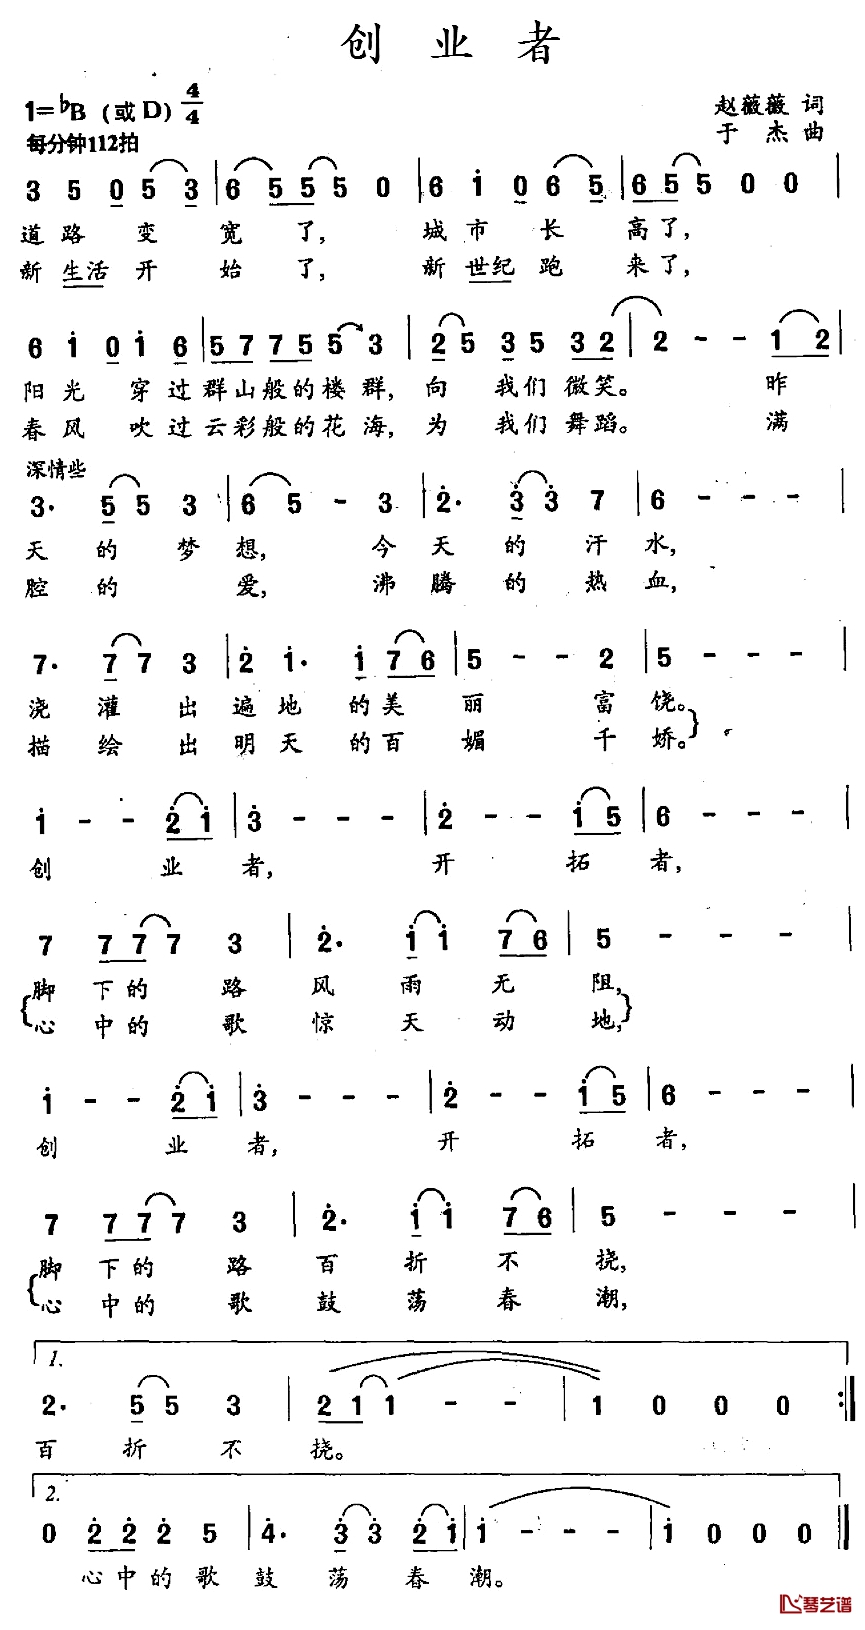 创业者
1=♭B（或D）4/4
赵薇薇 词
每分钟112拍
于杰 曲
3 5 0 5 3 | 6 5 5 5 0 | 6 i 0 6 5 | 6 5 5 0 0 |
道路变宽了，城市长高了，
新生活开始了，新世纪跑来了，
6 i 0 i 6 | 5 7 7 5 5 3 | 2 5 3 5 3 2 | 2 - - 1 2 |
阳光穿过群山般的楼群，向我们微笑。昨
春风吹过云彩般的花海，为我们舞蹈。满
深情些
3· 5 5 3 | 6 5 - 3 | 2· 3 3 7 | 6 - - - |
天的梦想，今天的汗水，
腔的爱，沸腾的热血，
7· 7 7 3 | 2 i· i 7 6 | 5 - - 2 | 5 - - - |
浇灌出遍地的美丽富饶。
描绘出明天的百媚千娇。}
i - - 2 i | 3 - - - | 2 - - i 5 | 6 - - - |
创业者，开拓者，
7 7 7 7 3 | 2· i i 7 6 | 5 - - - |
{脚下的路风雨无阻，}
心中的歌惊天动地，
i - - 2 i | 3 - - - | 2 - - i 5 | 6 - - - |
创业者，开拓者，
7 7 7 7 3 | 2· i i 7 6 | 5 - - - |
{脚下的路百折不挠，
心中的歌鼓荡春潮，
1.
2· 5 5 3 | 2 1 1 - - | 1 0 0 0 :‖
百折不挠。
2.
0 2 2 2 5 | 4· 3 3 2 i | i - - - | i 0 0 0 ‖
心中的歌鼓荡春潮。
琴艺谱